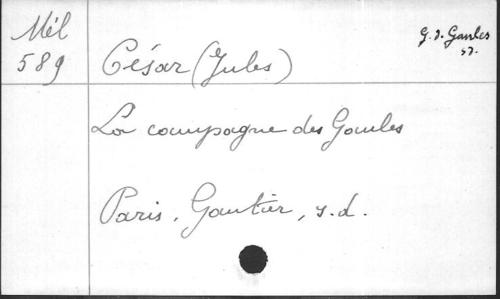 Mél
589
César (Jules)
G. d. Gaules
La campagne des Gaules
Paris, Gautier, s.d.